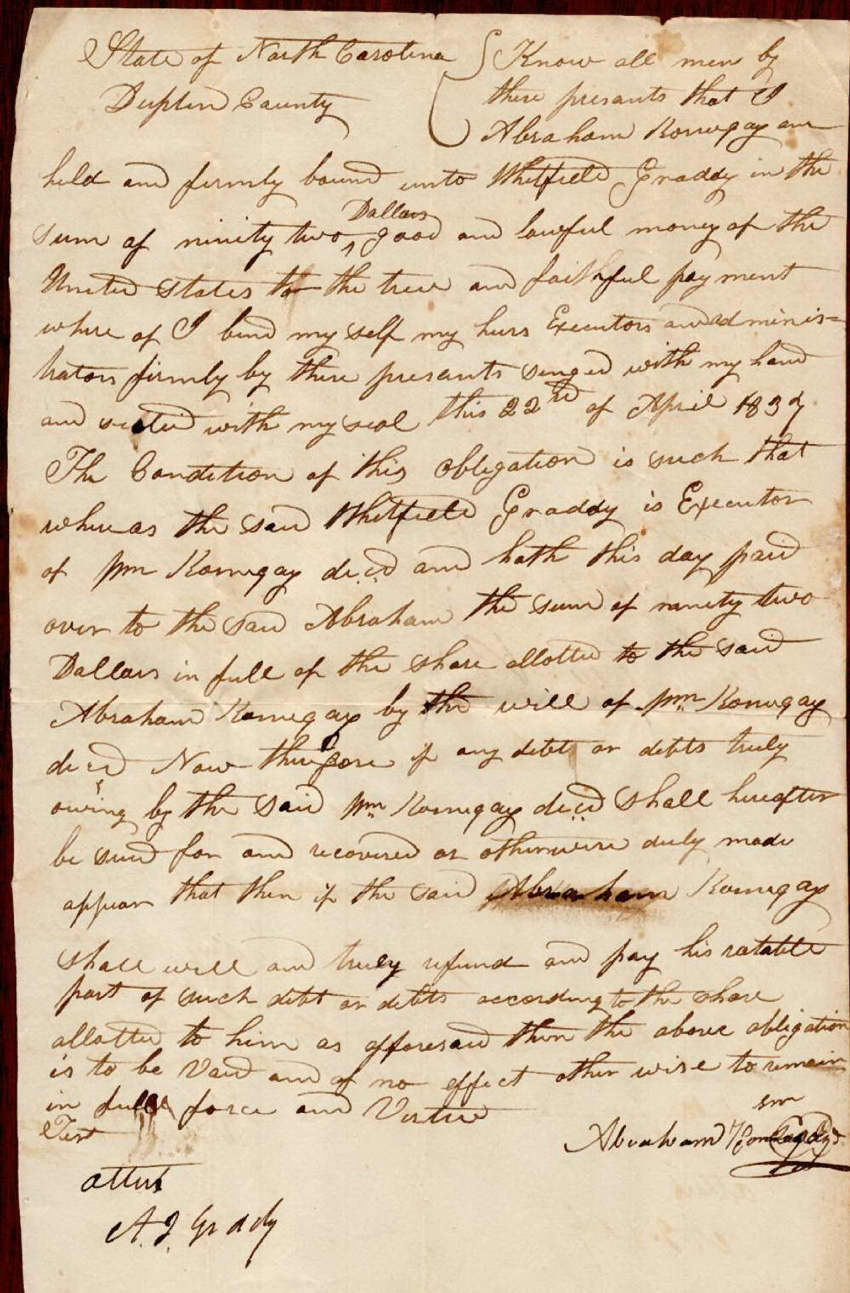 State of North Carolina { Know all men by
Duplin County these presants that I
Abraham Kornegay am
held and firmly bound unto Whitfield Graddy in the
Dollars
sum of ninity two ^ good and lawful money of the
United States to the trew and faithful payment
where of I bind my self my heirs Executors and adminis=
trators firmly by these presants singed with my hand
and sealed with my seal this 22nd of April 1837
The Condition of this obligation is such that
whereas the said Whitfield Graddy is Executor
of Wm Kornegay decd and hath this day paid
over to the said Abraham the sum of ninity two
Dollars in full of the share allotted to the said
Abraham Kornegay by the will of Wm Kornegay
decd Now therefore if any debt or debts truly
owing by the said Wm Kornegay decd shall hereafter
be sued for and recovered or otherwise duly made
appear that then if the said Abraham Kornegay
shall well and truly refund and pay his ratable
part of such debt or debts according to the share
allotted to him as afforesaid then the above obligation
is to be Vaid and of no effect other wise to remain
in full force and Virtue
Test
Abraham
attest
A. J. Grady